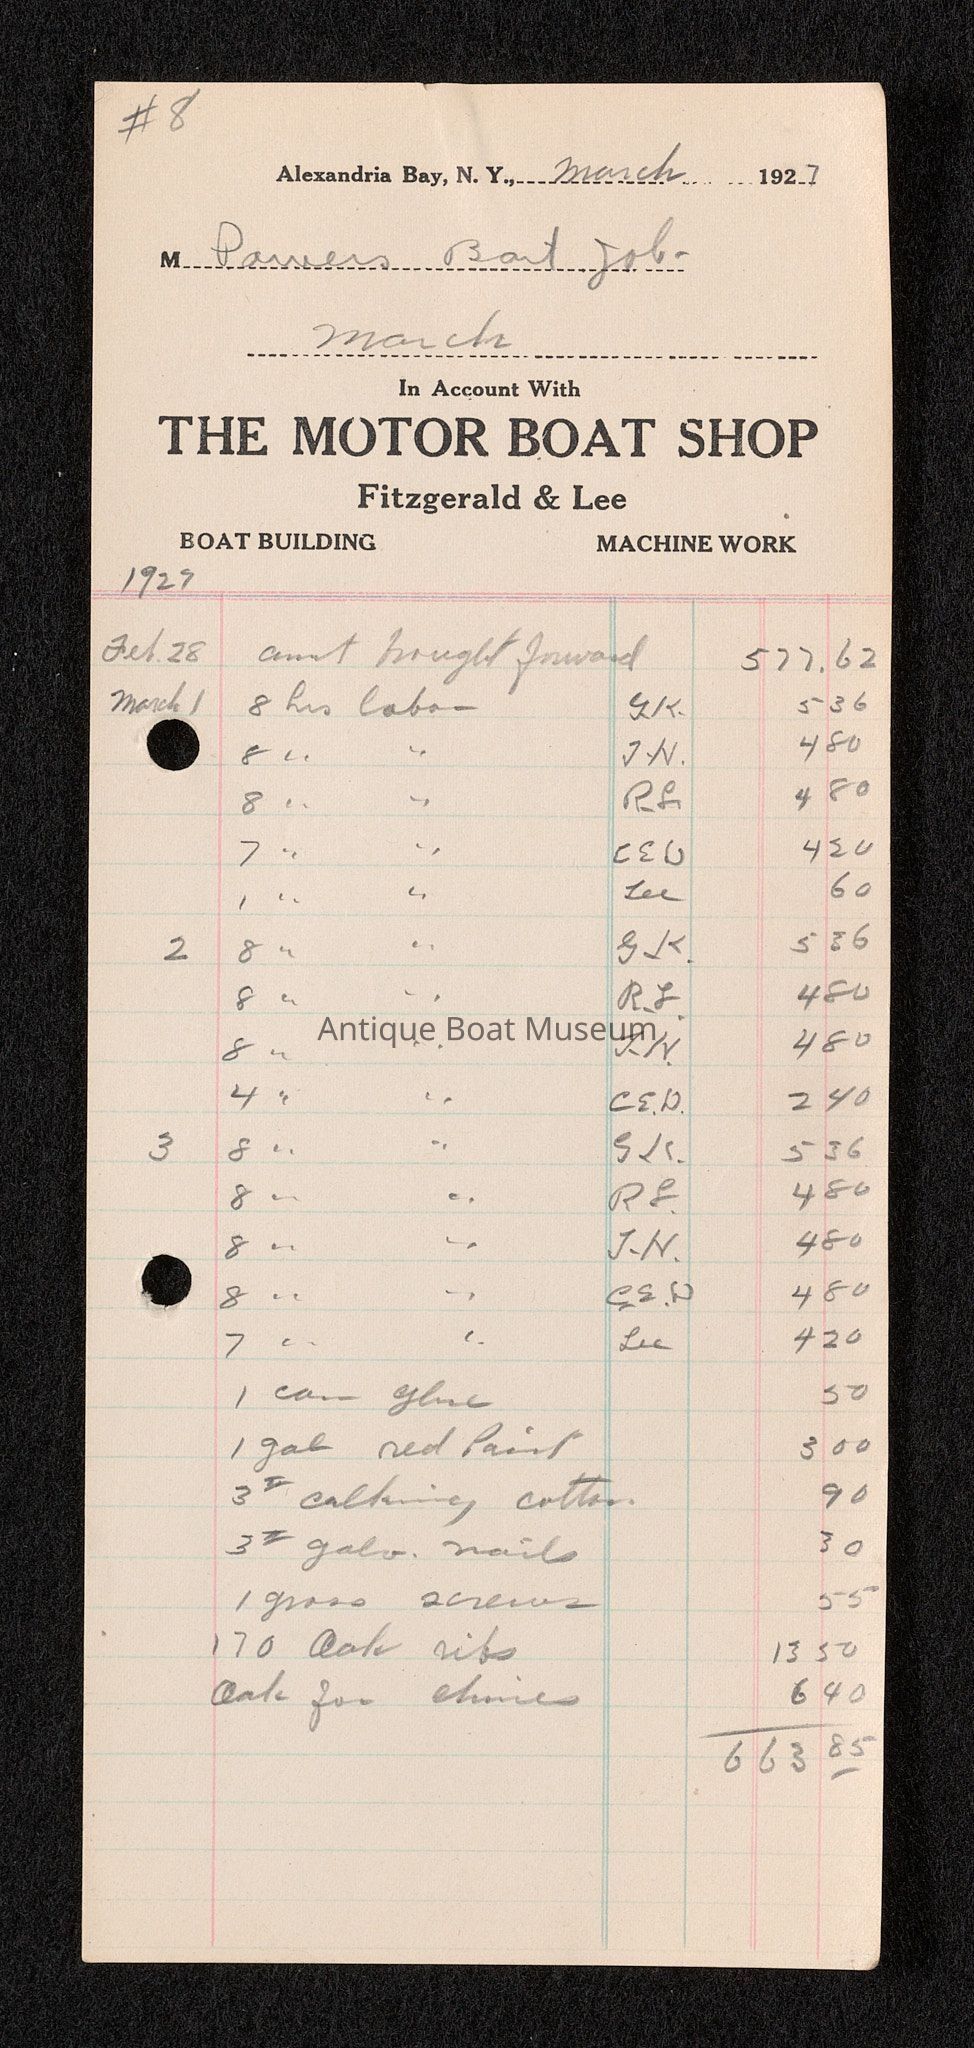 #8
Alexandria Bay, N. Y., March 1927
M Powers Boat Job-
March
In Account With
THE MOTOR BOAT SHOP
Fitzgerald & Lee
BOAT BUILDING MACHINE WORK
1927
Feb. 28 amt brought forward 577.62
March 1 8 hrs labor G.K. 5 36
8 " " J.N. 4 80
8 " " R.L. 4 80
7 " " CED 4 20
1 " " Lee 60
2 8 " " G.K. 5 36
8 " " R.L. 4 80
8 " " J.N. 4 80
4 " " C.E.D. 2 40
3 8 " " G.K. 5 36
8 " " R.L. 4 80
8 " " J.N. 4 80
8 " " C.E.D 4 80
7 " " Lee 4 20
1 can glue 50
1 gal red Paint 3 00
3# calking cotton 90
3# galv. nails 30
1 gross screws 55
170 Oak ribs 13 50
Oak for chines 6 40
663 85
Antique Boat Museum